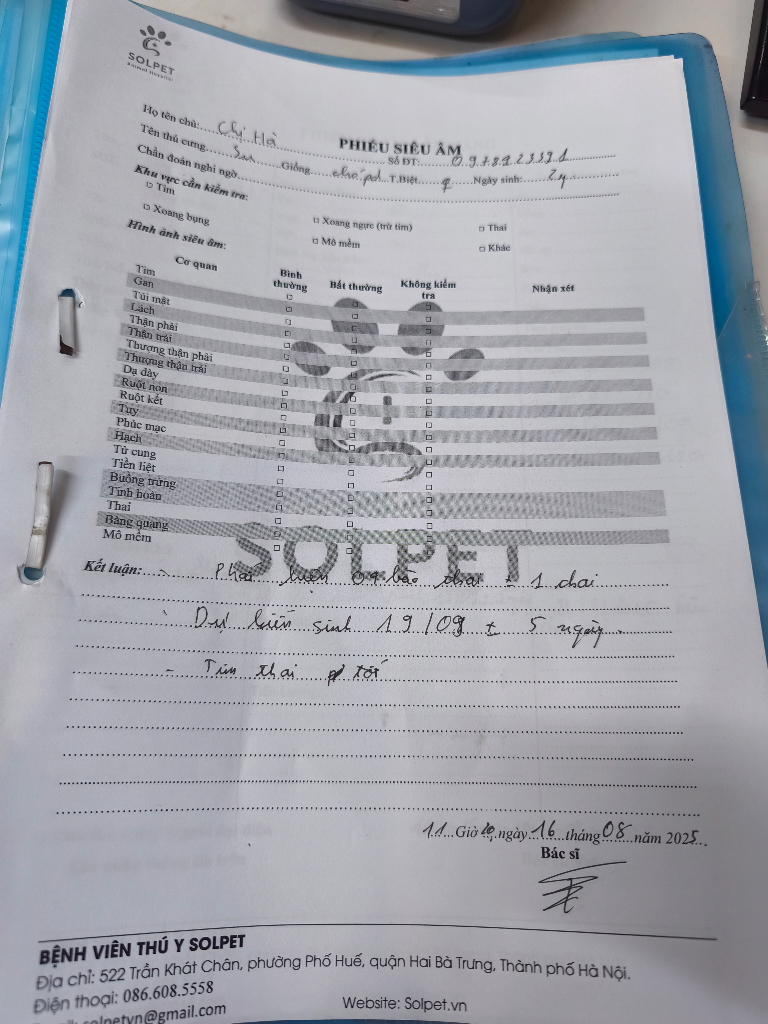 SOLPET
Animal Hospital
PHIẾU SIÊU ÂM
Họ tên chủ: Chị Hà Số ĐT: 0978923591
Tên thú cưng: Su Giống: chó pd T.Biệt: ♀ Ngày sinh: 2y
Chẩn đoán nghi ngờ
Khu vực cần kiểm tra:
□ Tim □ Xoang ngực (trừ tim) □ Thai
□ Xoang bụng □ Mô mềm □ Khác
Hình ảnh siêu âm:
Cơ quan Bình thường Bất thường Không kiểm tra Nhận xét
Tim
Gan
Túi mật
Lách
Thận phải
Thận trái
Thượng thận phải
Thượng thận trái
Dạ dày
Ruột non
Ruột kết
Tụy
Phúc mạc
Hạch
Tử cung
Tiền liệt
Buồng trứng
Tinh hoàn
Thai
Bàng quang
Mô mềm
SOLPET
Kết luận: - Phát hiện bào thai ± 1 thai
- Dự kiến sinh 19/09 ± 5 ngày.
- Tim thai tốt
11 Giờ 20 ngày 16 tháng 08 năm 2025
Bác sĩ
BỆNH VIỆN THÚ Y SOLPET
Địa chỉ: 522 Trần Khát Chân, phường Phố Huế, quận Hai Bà Trưng, Thành phố Hà Nội.
Điện thoại: 086.608.5558
Email: solpetvn@gmail.com Website: Solpet.vn